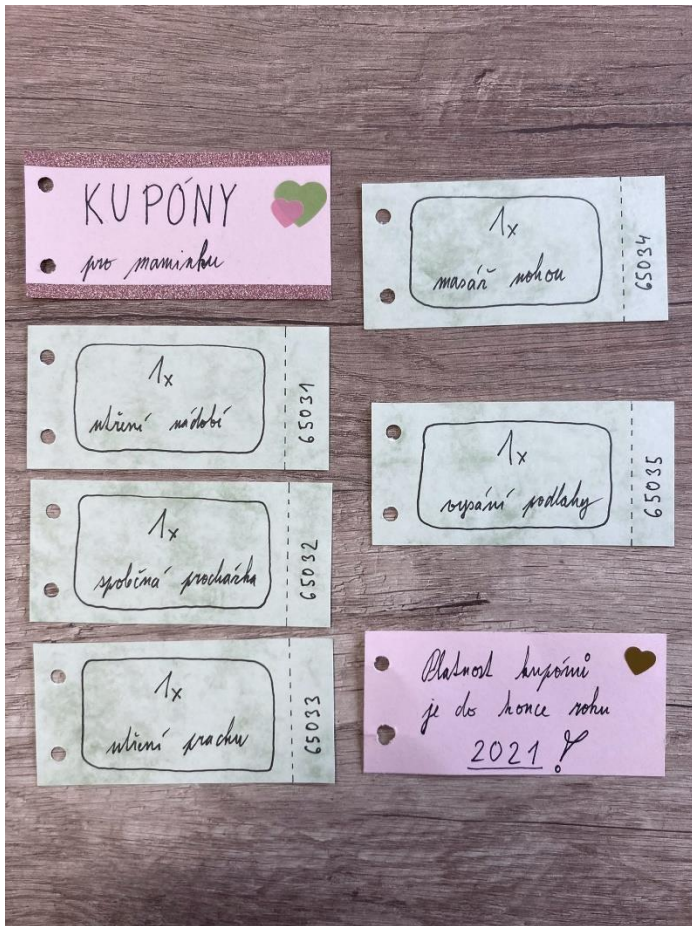 KUPÓNY
pro maminku
1x
utření nádobí
65031
1x
společná procházka
65032
1x
utření prachu
65033
1x
masáž nohou
65034
1x
vysání podlahy
65035
Platnost kupónů
je do konce roku
2021!